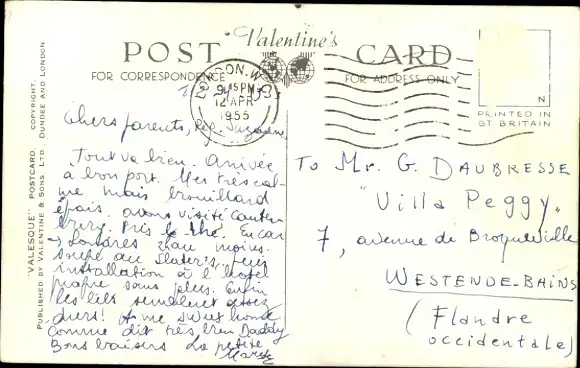 POST "Valentine's CARD
FOR CORRESPONDENCE
FOR ADDRESS ONLY
ON. W
15 PM
12 APR
1955
PRINTED IN
GT BRITAIN
"VALESQUE" POSTCARD. COPYRIGHT.
PUBLISHED BY VALENTINE & SONS, LTD. DUNDEE AND LONDON
Chers parents,
Tout va bien. Arrivée
à bon port. Mer très cal-
me mais brouillard
épais. avons visité Canter-
bury. Pris le thé. En car
→ Londres
au Slater's, puis
installation à l'hôtel
propre sans plus. Enfin
les lits semblent assez
durs!
Comme dit très bien Daddy
Bons baisers La petite
To Mr. G. DAUBRESSE
"Villa Peggy"
7, avenue de Broqueville
WESTENDE-BAINS
(Flandre
occidentale)